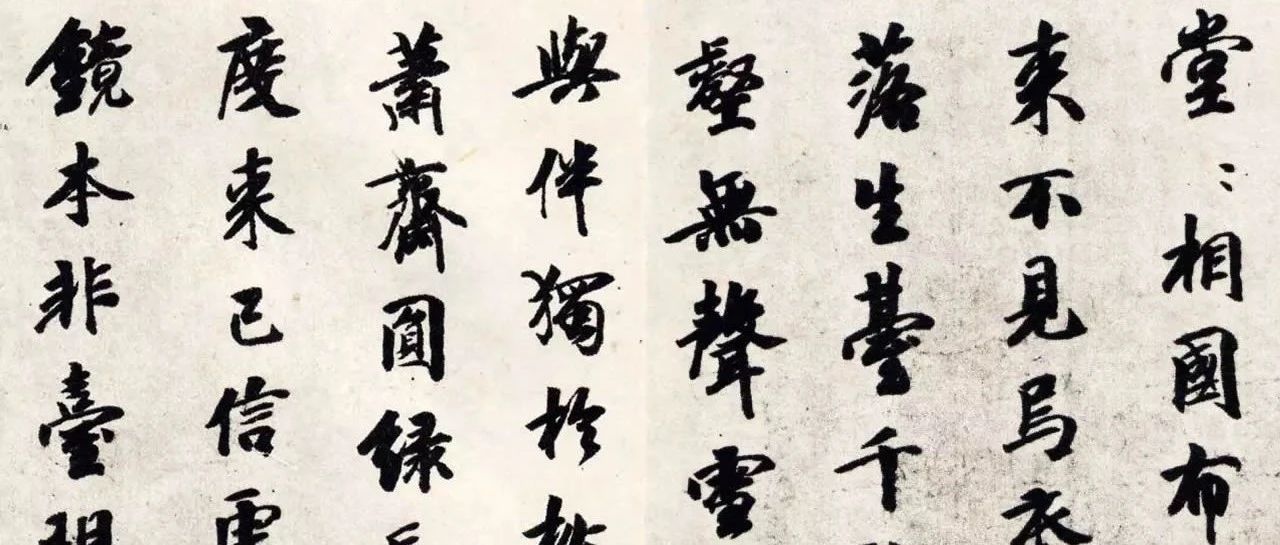 堂〻相國布
来不見烏衣
落生臺千
壑無聲雪
與伴獨於
蕭齋圓緑
度来已信
鏡本非臺